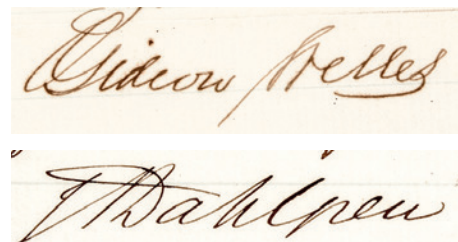 Gideon Welles
Dahlgren